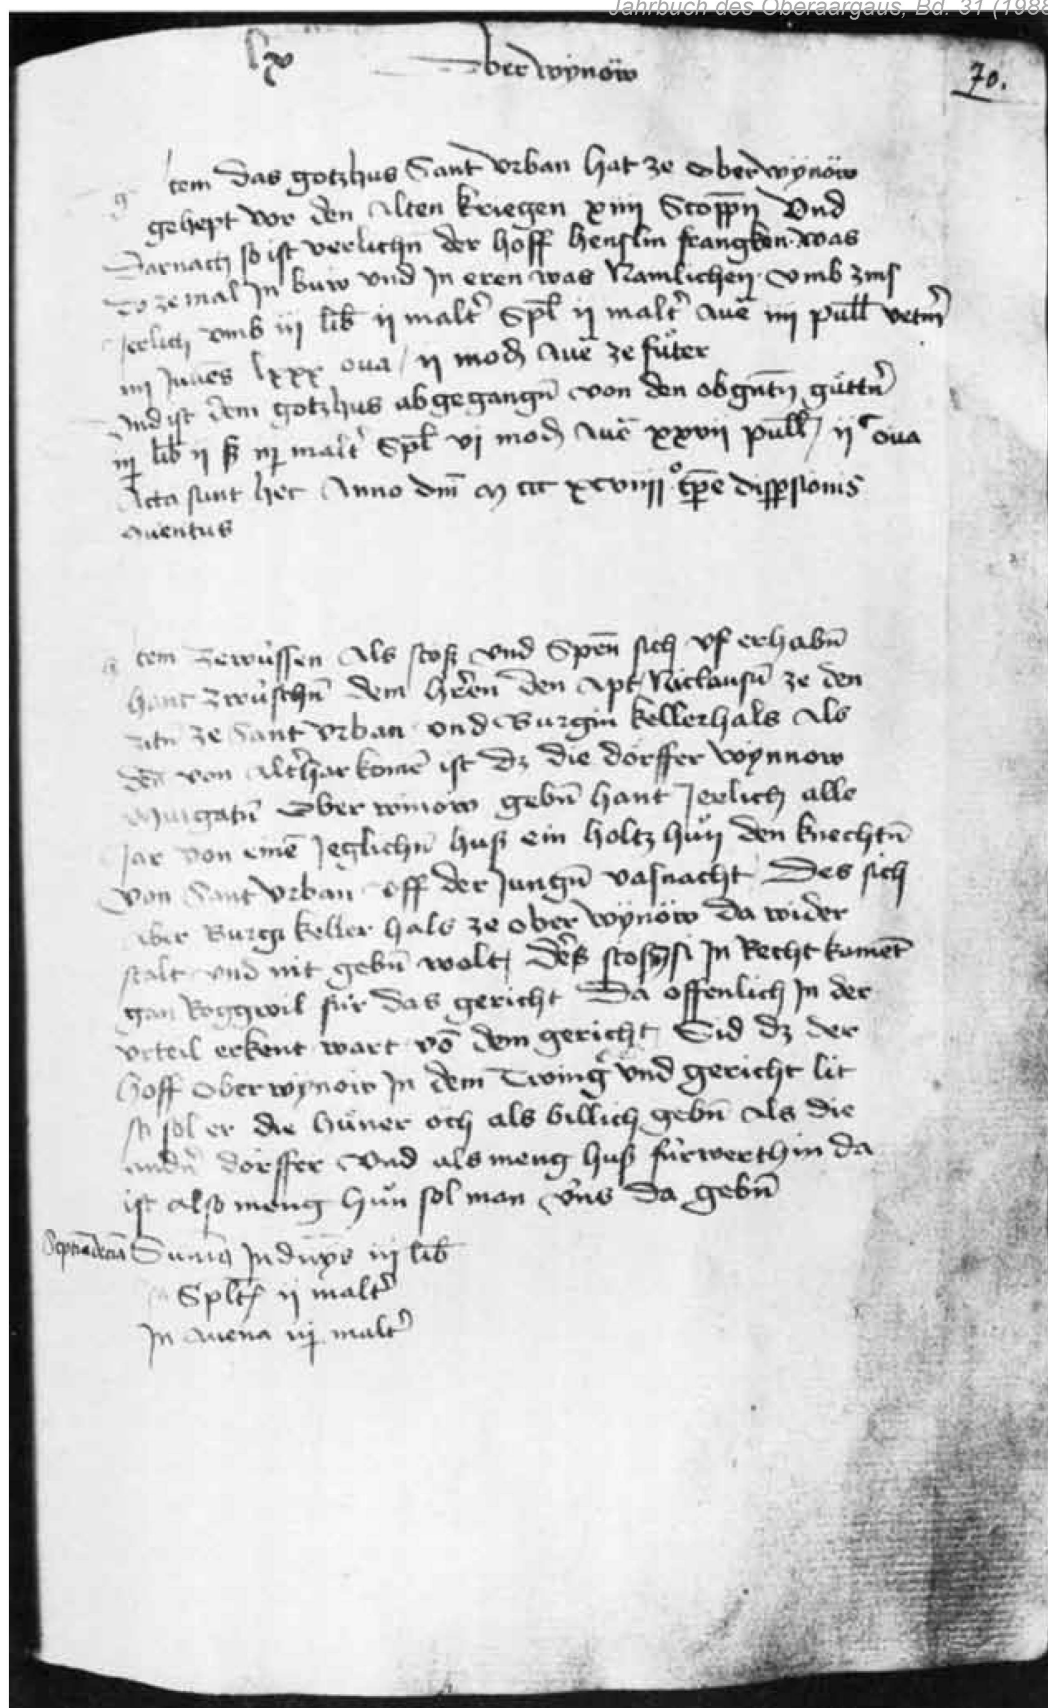 Jahrbuch des Oberaargaus, Bd. 31 (1988
lxv Oberwynöw 70.
Item das gotzhus Sant Urban hat ze oberwÿnöw
gehept vor den Alten kriegen xiiii Scopp Und
Darnach so ist verlichn̄ der hoff henslin frangken was
do ze mal In buw vnd In eren was Namlichen vmb zins
Jerlich vmb iii lib ii malt Spl ii malt Aue iiii pull vetm
iiii Juues lxxx oua ii mod Aue ze fůter
Und ist dem gotzhus abgegangn̄ von den obgntn güttn
lib ii ß malt Spl vi mod Aue xxvii pull ii c oua
Acta sunt hec Anno dm̄ M ccc xcviiii tpe disspsionis
Auentus
Item zewüssen Als stoß vnd Spen̄ sich vf erhabn̄
hant zwüschn̄ dem hren den Apt Niclausn̄ ze den
zitn̄ ze Sant vrban vnd Burgin kellerhals Als
von Altharkomē ist dz die dörffer wynnow
Murgatn̄ Ober winöw gebn̄ hant Jerlich alle
Jar von eine Jeglichn̄ huß ein holtz hůn den knechtn̄
von Sant vrban vff der Jungn̄ vasnacht Des sich
aber Burgi keller hals ze ober wÿnöw da wider
stalt vnd nit gebn̄ wolt des stoß si In Recht kament
gan Roggwil für das gericht Da offenlich In der
vrteil erkent wart vō dem gericht Sid dz der
hoff oberwynöw In dem Twing vnd gericht lit
so sol er die hüner och als billich gebn̄ Als die
andn̄ dörffer Vnd als meng huß fürwerthin da
ist also meng hůn sol man vns da gebn̄
Sum In dn̄ys iij lib
Splt ij malt
In Auena malt